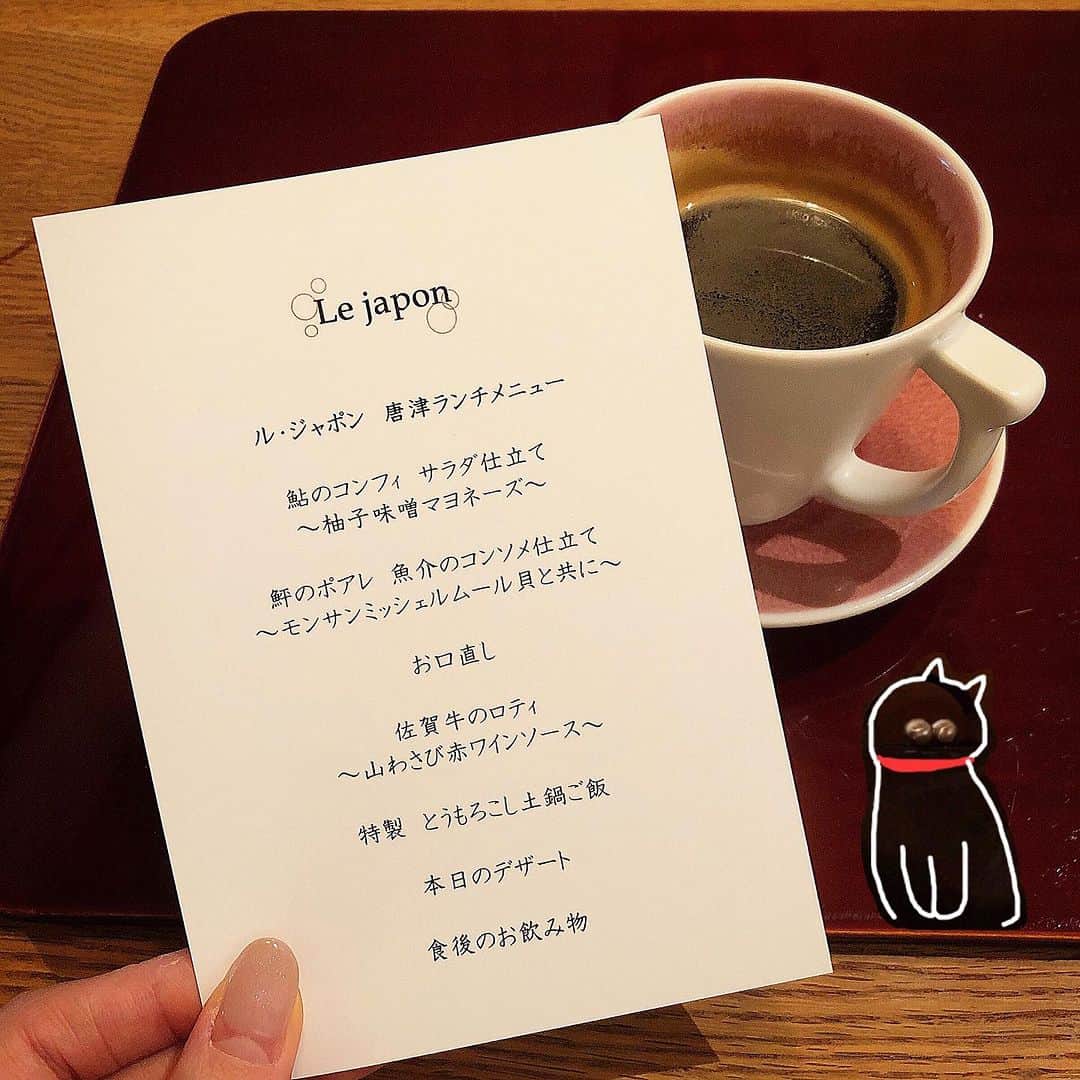 Le japon
ル・ジャポン 唐津ランチメニュー
鮎のコンフィ サラダ仕立て
～柚子味噌マヨネーズ～
鮃のポアレ 魚介のコンソメ仕立て
～モンサンミッシェルムール貝と共に～
お口直し
佐賀牛のロティ
～山わさび赤ワインソース～
特製 とうもろこし土鍋ご飯
本日のデザート
食後のお飲み物